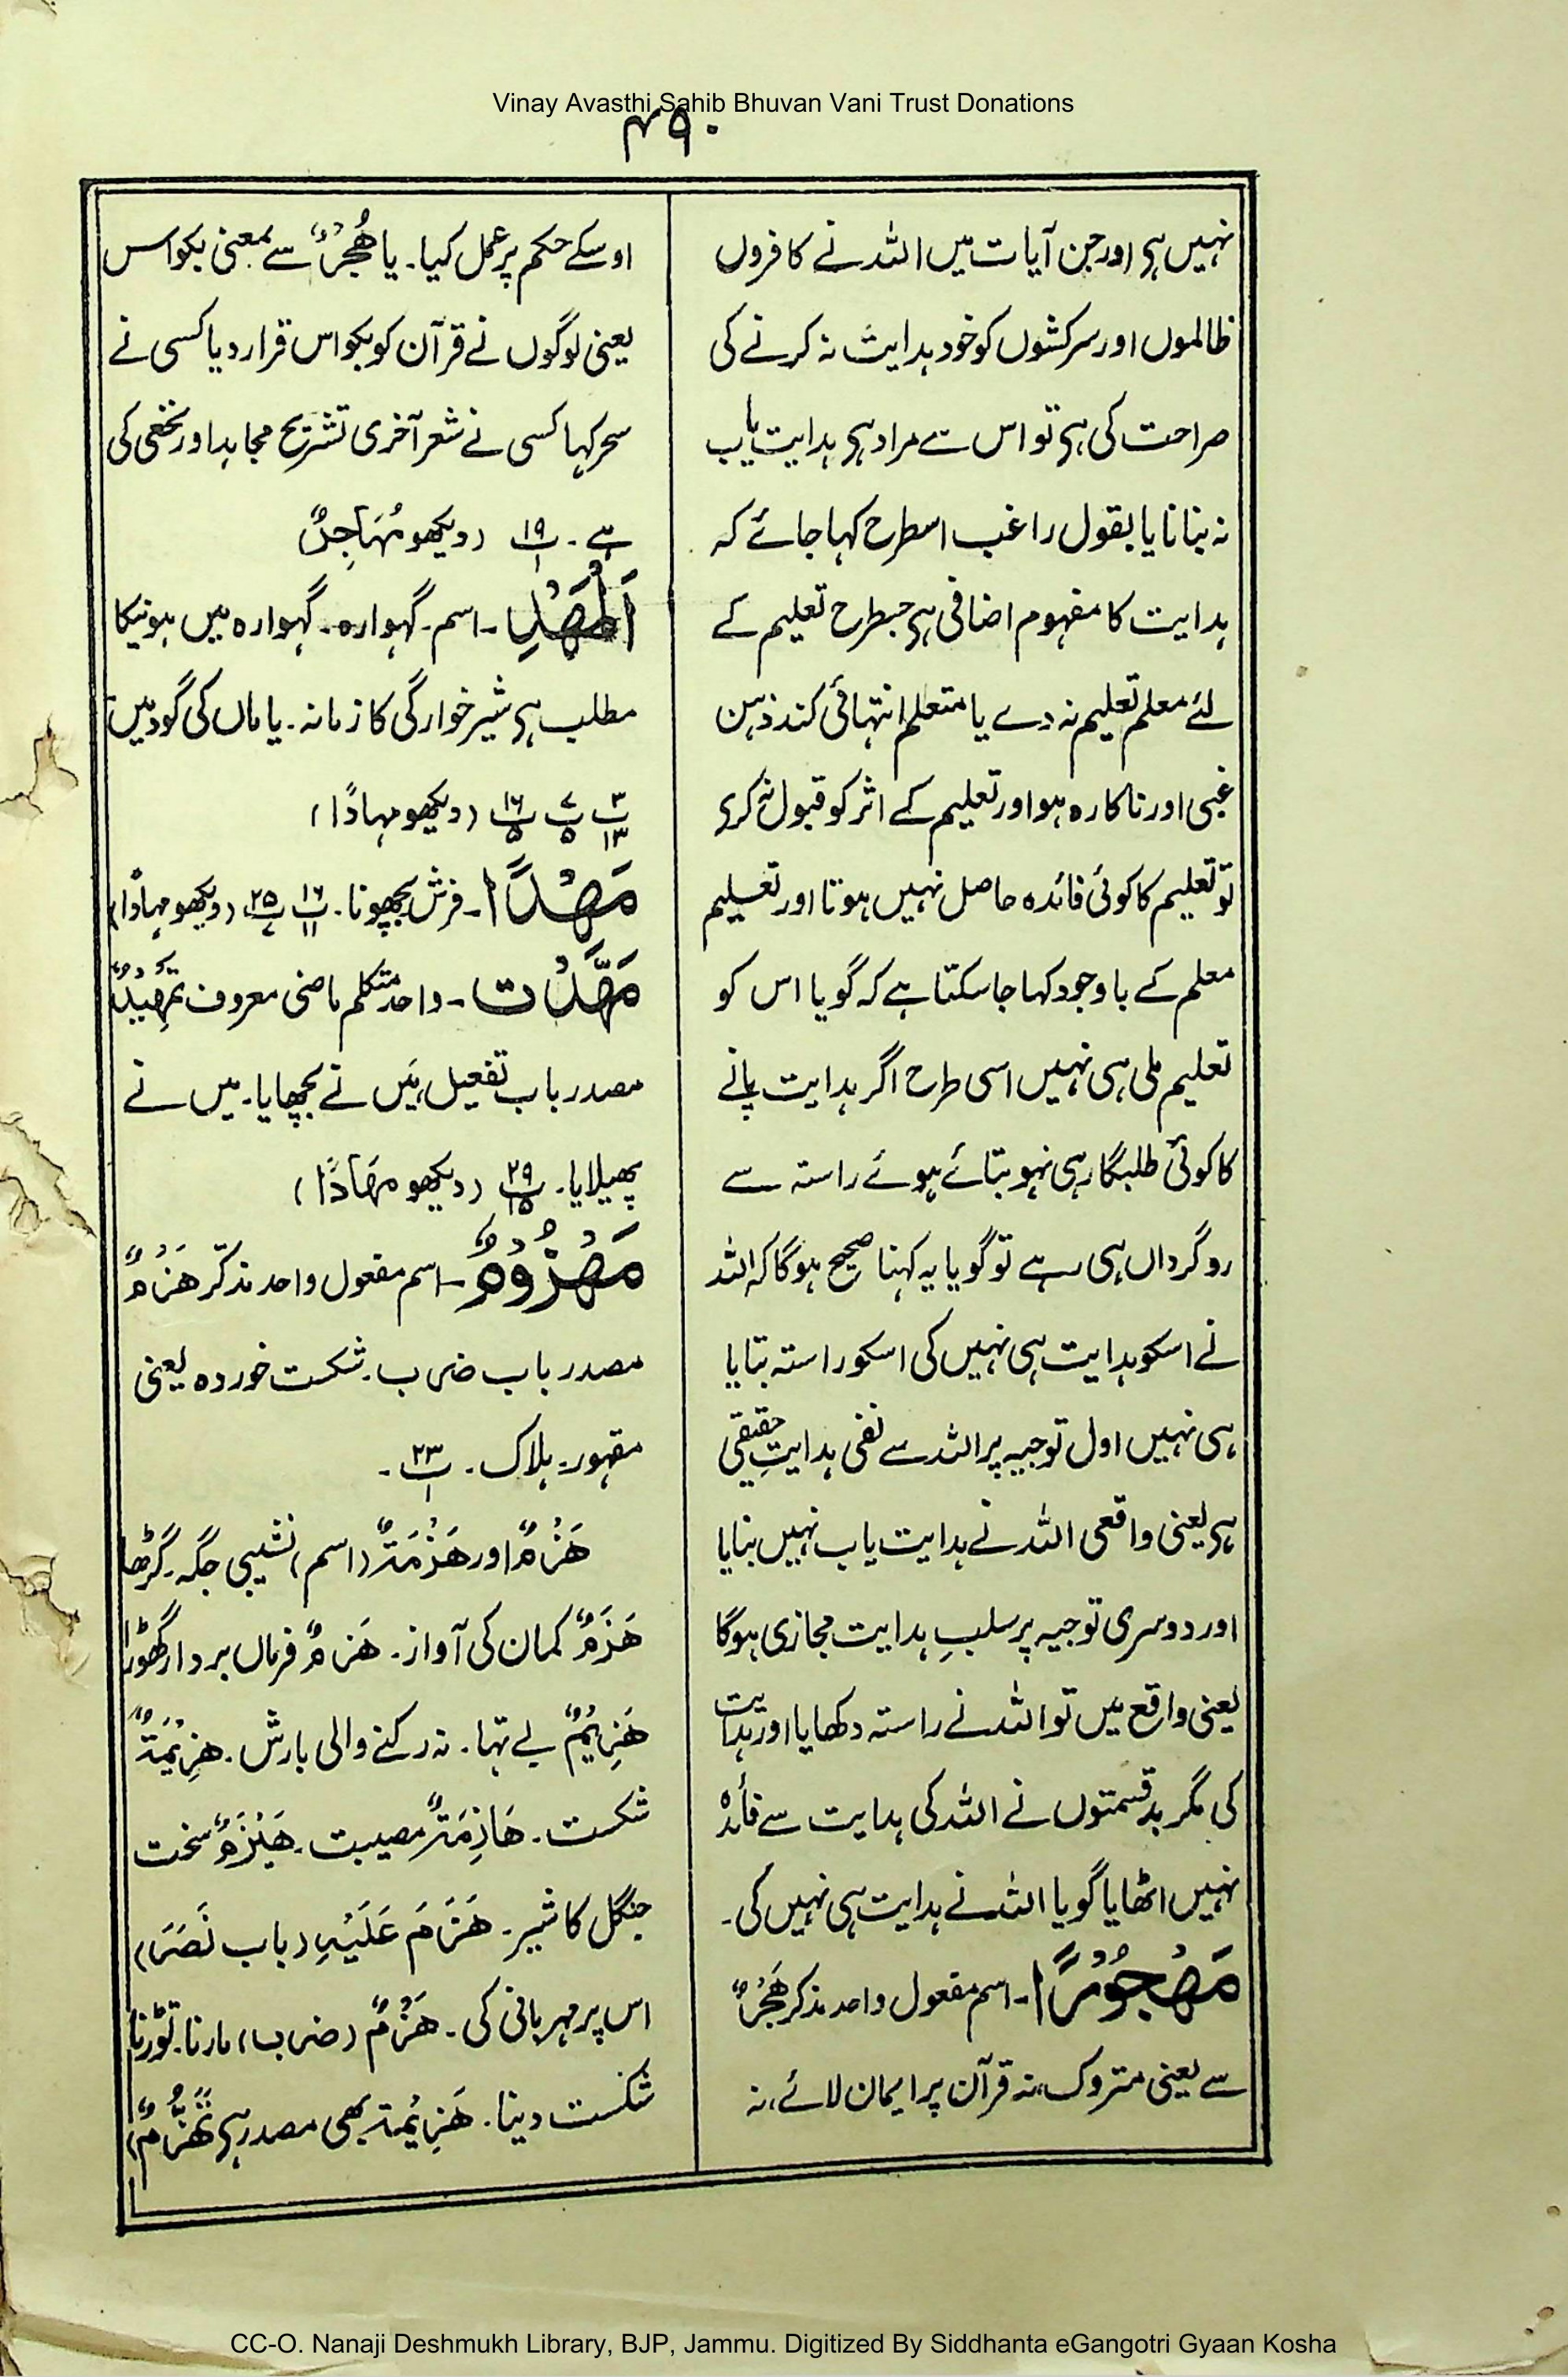 Vinay Avasthi Sahib Bhuvan Vani Trust Donations
۴۵۰
نہیں ہی اور جن آیات میں اللہ نے کافروں
ظالموں اور سرکشوں کو خود ہدایت نہ کرنے کی
صراحت کی ہی تو اس سے مراد ہی ہدایت یاب
نہ بنانا یا بقول راغب اسطرح کہا جائے کہ
ہدایت کا مفہوم اضافی ہی جسطرح تعلیم کے
لئے معلم تعلیم نہ دے یا متعلم انتہائی کند ذہن
غبی اور ناکارہ ہو اور تعلیم کے اثر کو قبول نہ کری
تو تعلیم کا کوئی فائدہ حاصل نہیں ہوتا اور تعلیم
معلم کے باوجود کہا جاسکتا ہے کہ گویا اس کو
تعلیم ملی ہی نہیں اسی طرح اگر ہدایت پانے
کا کوئی طلبگار ہی نہو بتائے ہوئے راستہ سے
روگرداں ہی رہے تو گویا یہ کہنا صحیح ہوگا کہ اللہ
نے اسکو ہدایت ہی نہیں کی اسکو راستہ بتایا
ہی نہیں اول توجیہ پر اللہ سے نفی ہدایتِ حقیقی
ہی یعنی واقعی اللہ نے ہدایت یاب نہیں بنایا
اور دوسری توجیہ پر سلبِ ہدایت مجازی ہوگا
یعنی واقع میں تو اللہ نے راستہ دکھایا اور ہدایت
کی مگر بدقسمتوں نے اللہ کی ہدایت سے فائدہ
نہیں اٹھایا گویا اللہ نے ہدایت ہی نہیں کی۔
مَهْجُوْرًا۔ اسم مفعول واحد مذکر هَجْرٌ
سے یعنی متروک، نہ قرآن پر ایمان لائے، نہ
اوسکے حکم پر عمل کیا۔ یا هُجْرٌ سے بمعنی بکواس
یعنی لوگوں نے قرآن کو بکواس قرار دیا کسی نے
سحر کہا کسی نے شعر آخری تشریح مجاہد اور نخعی کی
ہے۔ پ۱۹/۱ (دیکھو مُهَاجِرٌ
اَلْمَهْدِ۔ اسم۔ گہوارہ۔ گہوارہ میں ہونیکا
مطلب ہی شیرخوارگی کا زمانہ۔ یا ماں کی گود میں
پ۳/۱۳ پ۷/۵ پ۱۶/۵ (دیکھو مہادًا)
مَهْدًا۔ فرش بچھونا۔ پ۱۶/۱۱ پ۲۵/۷ (دیکھو مہادًا)
مَهَّدْتُ۔ واحد متکلم ماضی معروف تَمْهِيْدٌ
مصدر باب تفعیل، میں نے بچھایا۔ میں نے
پھیلایا۔ پ۲۹/۱۵ (دیکھو مِهَادًا)
مَهْزُوْمٌ۔ اسم مفعول واحد مذکّر هَزْمٌ
مصدر باب ضرب۔ شکست خوردہ یعنی
مقہور۔ ہلاک۔ پ۲۳/۱۔
هَزْمٌ اور هَزْمَةٌ (اسم) نشیبی جگہ۔ گڑھا
هَزَمٌ کمان کی آواز۔ هَزِمٌ فرماں بردار گھوڑا
هَزِيْمٌ بے تہا۔ نہ رکنے والی بارش۔ هَزِيْمَةٌ
شکست۔ هَازِمَةٌ مصیبت۔ هَيْزَمٌ سخت
جنگل کا شیر۔ هَزَمَ عَلَيْهِ (باب نَصَرَ)
اس پر مہربانی کی۔ هَزْمٌ (ضرب) مارنا۔ توڑنا
شکست دینا۔ هَزِيْمَة بھی مصدر ہی تَهَزُّمٌ)
CC-O. Nanaji Deshmukh Library, BJP, Jammu. Digitized By Siddhanta eGangotri Gyaan Kosha